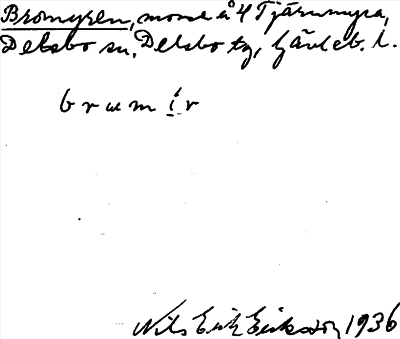 Bromyren, mosse å 4 Tjärnmyra,
Delsbo sn, Delsbo tg, Gävleb. l.
brumír
Nils Erik Eriksson 1936